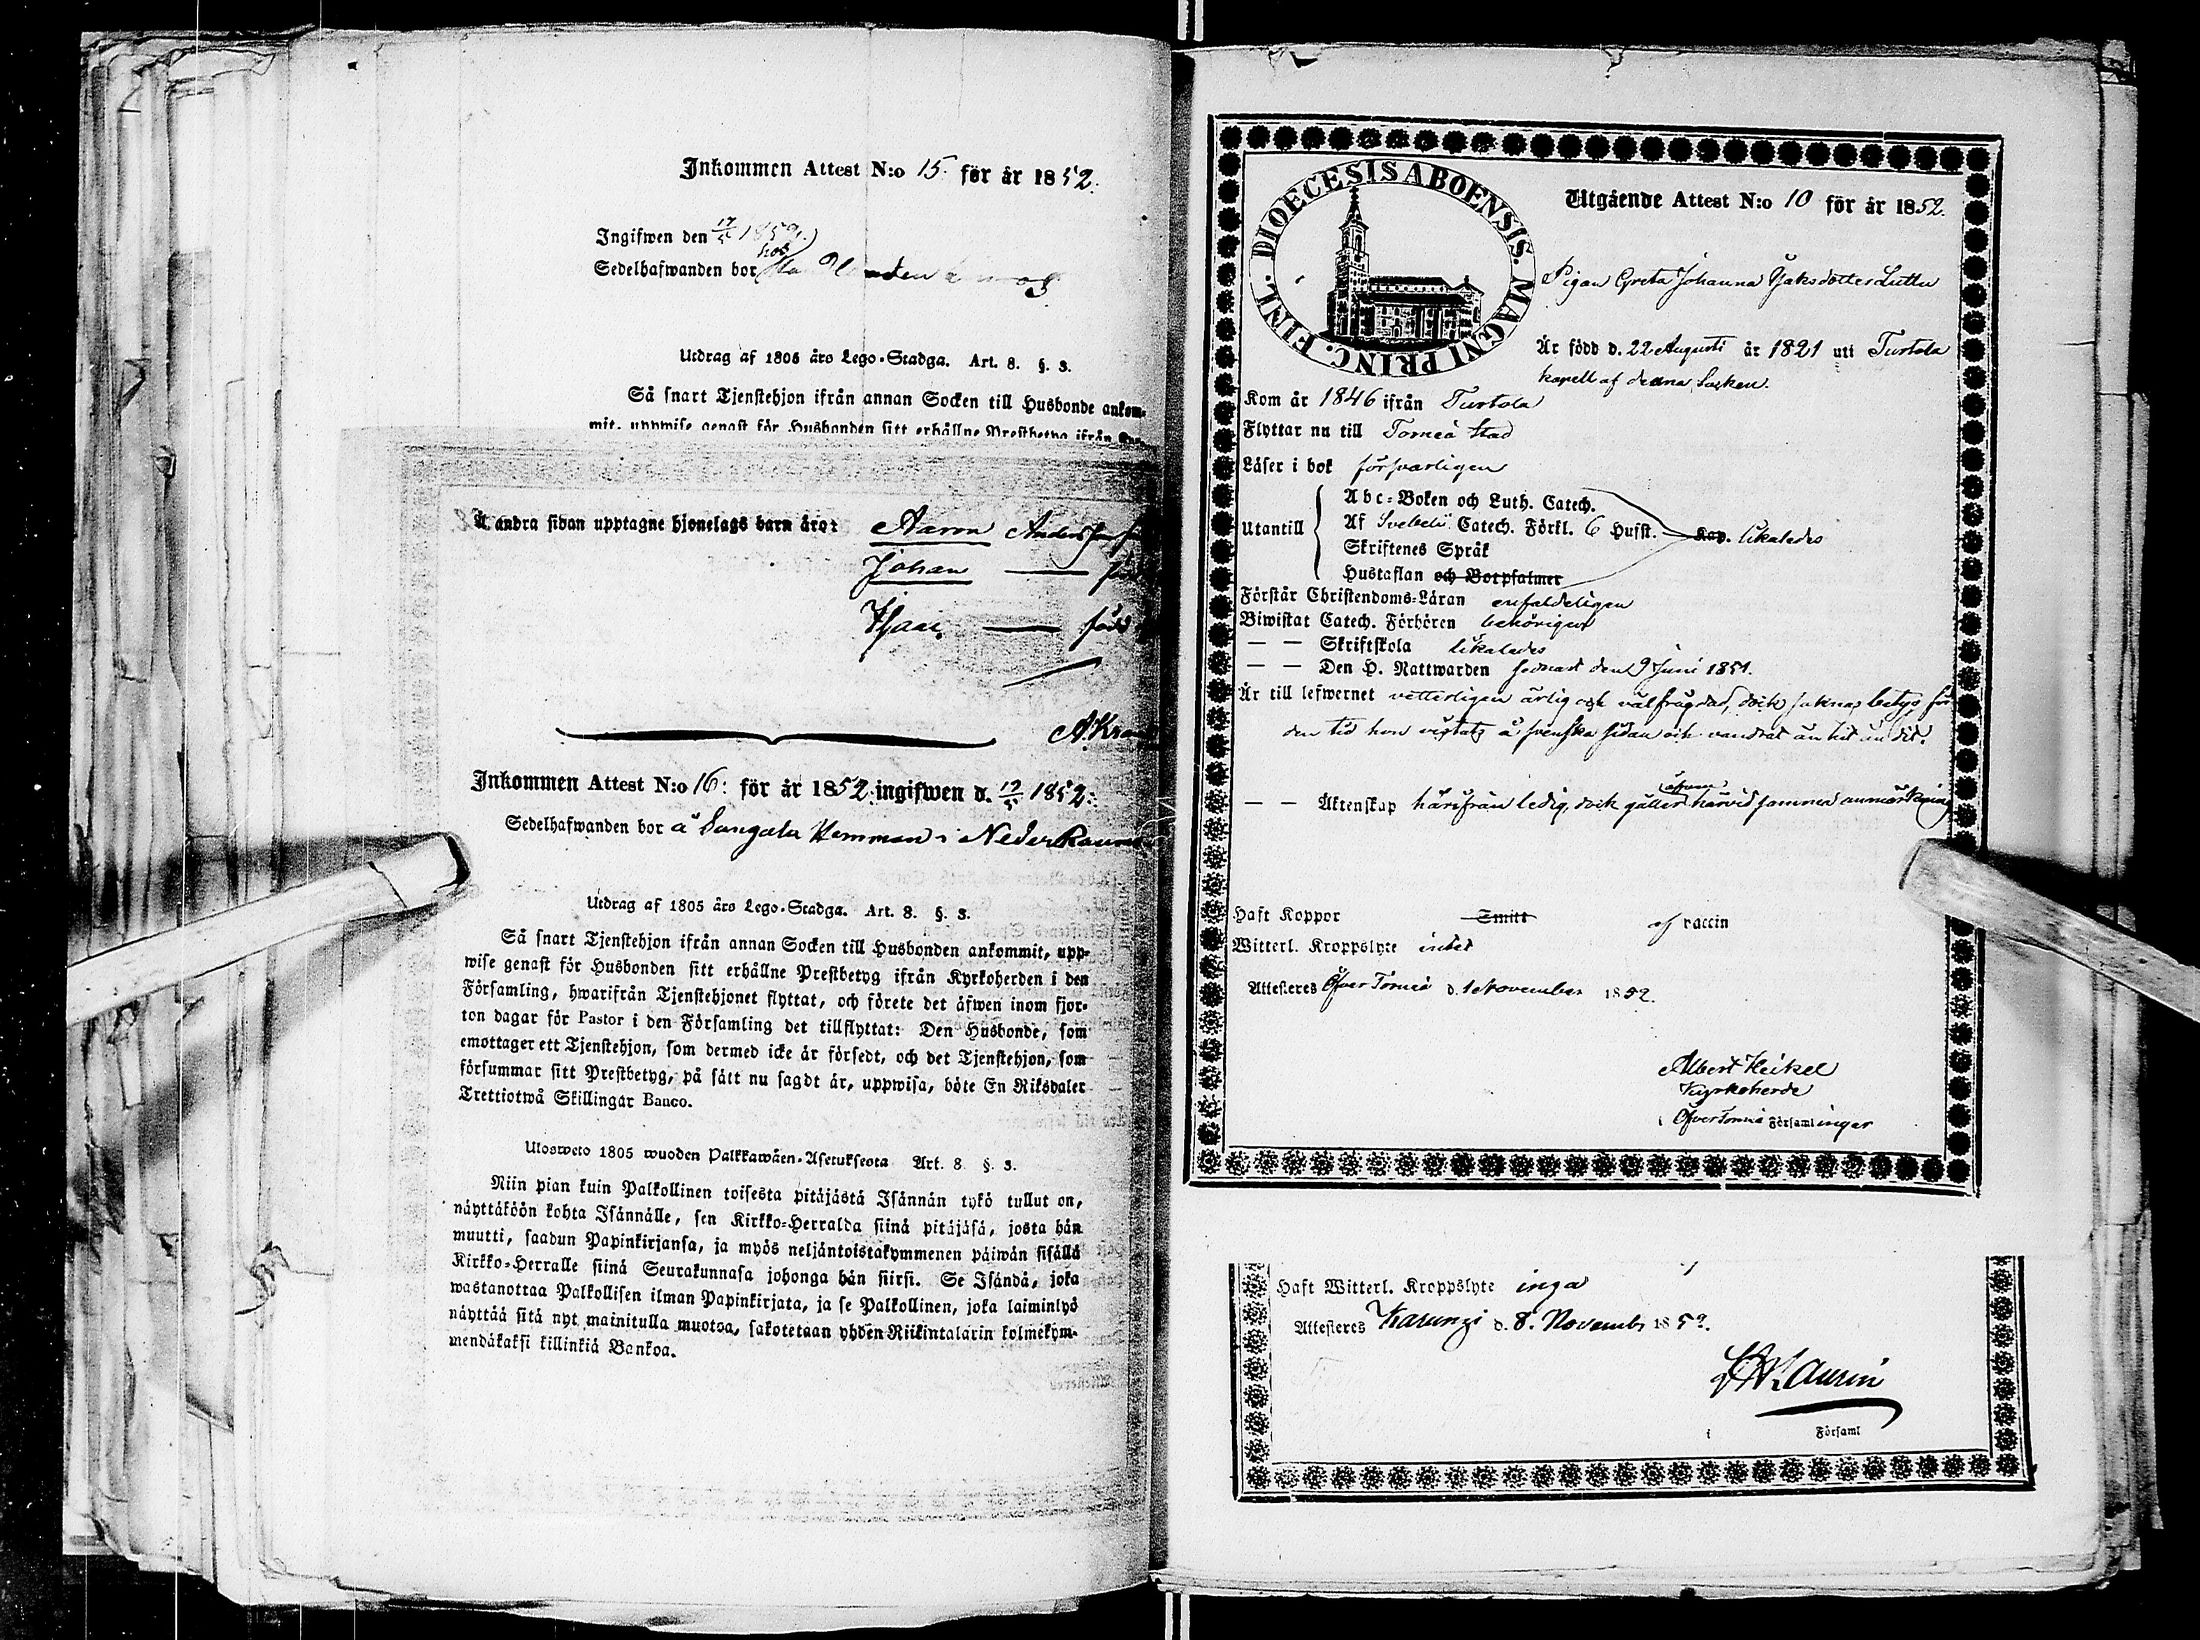 Inkommen Attest N:o 15. för år 1852.
Ingifwen den 17/5 185
Sedelhafwanden bor hos
Utdrag af 1805 års Lego-Stadga. Art. 8. §. 3.
Så snart Tjenstehjon ifrån annan Socken till Husbonde ankom-
mit, uppwise genast för Husbonden sitt erhållne Prestbetyg ifrån
Å andra sidan upptagne hjonelags barn äro: Aaron Andersson
Johan ——
Isaac —— född
A. Kra
Inkommen Attest N:o 16: för år 1852: ingifwen d. 17/5 1852:
Sedelhafwanden bor å Sangala Hemman i Neder
Utdrag af 1805 års Lego-Stadga. Art. 8. §. 3.
Så snart Tjenstehjon ifrån annan Socken till Husbonden ankommit, upp-
wise genast för Husbonden sitt erhållne Prestbetyg ifrån Kyrkoherden i den
Församling, hwarifrån Tjenstehjonet flyttat, och förete det äfwen inom fjor-
ton dagar för Pastor i den Församling det tillflyttat: Den Husbonde, som
emottager ett Tjenstehjon, som dermed icke är försedt, och det Tjenstehjon, som
försummar sitt Prestbetyg, på sätt nu sagdt är, uppwisa, böte En Riksdaler
Trettiotwå Skillingar Banco.
Ulosweto 1805 wuoden Palkkawäen-Asetuksesta Art. 8 §. 3.
Niin pian kuin Palkollinen toisesta pitäjästä Isännän tykö tullut on,
näyttäköön kohta Isännälle, sen Kirkko-Herralda siinä pitäjäsä, josta hän
muutti, saadun Papinkirjansa, ja myös neljäntoistakymmenen päiwän sisällä
Kirkko-Herralle siinä Seurakunnasa johonga hän siirsi. Se Isändä, joka
wastanottaa Palkollisen ilman Papinkirjata, ja se Palkollinen, joka laiminlyö
näyttää sitä nyt mainitulla muotoa, sakotetaan yhden Riikintalarin kolmekym-
mendäkaksi killinkiä Bankoa.
DIOECESIS ABOENSIS. MAGNI PRINC. FINL.
Utgående Attest N:o 10 för år 1852.
Pigan Greta Johanna Isaksdotter Luttu
Är född d. 22 Augusti år 1821 uti Turtola
kapell af denna Socken.
Kom år 1846 ifrån Turtola
Flyttar nu till Torneå stad
Läser i bok försvarligen
Utantill
Abc-Boken och Luth. Catech.
Af Svebelii Catech. Förkl. 6 Hufst. Kap. likaledes
Skriftenes Språk
Hustaflan och Botpsalmer
Förstår Christendoms-Läran enfaldeligen
Biwistat Catech. Förhören behörigen
— — Skriftskola likaledes
— — Den H. Nattwarden senast den 9 Juni 1851.
Är till lefwernet vetterligen ärlig och välfrägdad, dock saknas betyg för
den tid hon vistats å svenska sidan och vandrat än hit än dit.
— — Äktenskap härifrån ledig, dock gäller äfven härvid samma anmärkning
Haft Koppor Smitt af vaccin
Witterl. Kroppslyte intet
Attesteres Öfver Torneå d. 1 November 1852.
Albert Heikel
Kyrkoherde
i Öfver Torneå Församlingar
Haft Witterl. Kroppslyte inga
Attesteres Karungi d. 8. November 1852.
Laurin
i Församl